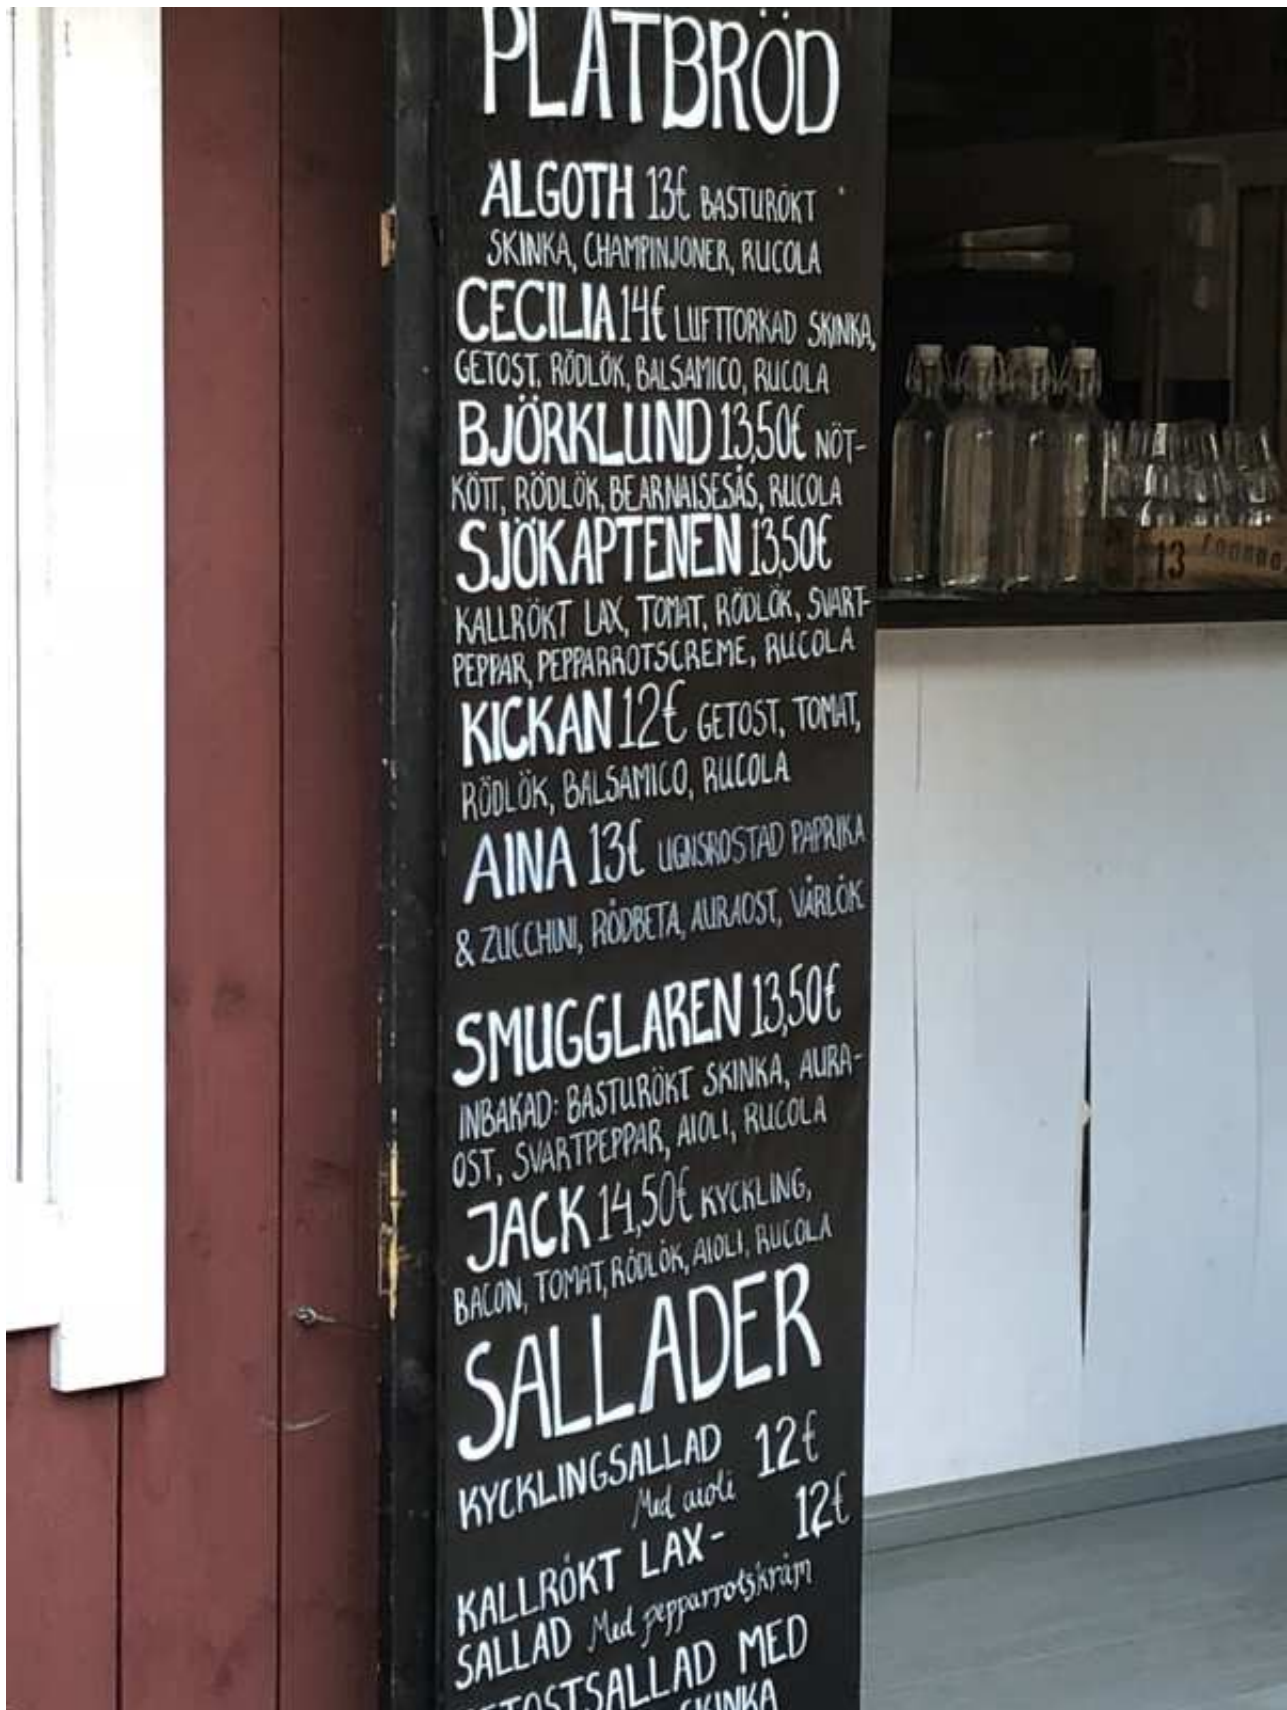 PLÅTBRÖD
ALGOTH 13€ BASTURÖKT
SKINKA, CHAMPINJONER, RUCOLA
CECILIA 14€ LUFTTORKAD SKINKA,
GETOST, RÖDLÖK, BALSAMICO, RUCOLA
BJÖRKLUND 13,50€ NÖT-
KÖTT, RÖDLÖK, BEARNAISESÅS, RUCOLA
SJÖKAPTENEN 13,50€
KALLRÖKT LAX, TOMAT, RÖDLÖK, SVART-
PEPPAR, PEPPARROTSCREME, RUCOLA
KICKAN 12€ GETOST, TOMAT,
RÖDLÖK, BALSAMICO, RUCOLA
AINA 13€ UGNSROSTAD PAPRIKA
& ZUCCHINI, RÖDBETA, AURAOST, VÅRLÖK
SMUGGLAREN 13,50€
INBAKAD: BASTURÖKT SKINKA, AURA-
OST, SVARTPEPPAR, AIOLI, RUCOLA
JACK 14,50€ KYCKLING,
BACON, TOMAT, RÖDLÖK, AIOLI, RUCOLA
SALLADER
KYCKLINGSALLAD 12€
Med aioli
KALLRÖKT LAX- 12€
SALLAD Med pepparrotskräm
GETOSTSALLAD MED
SKINKA
13